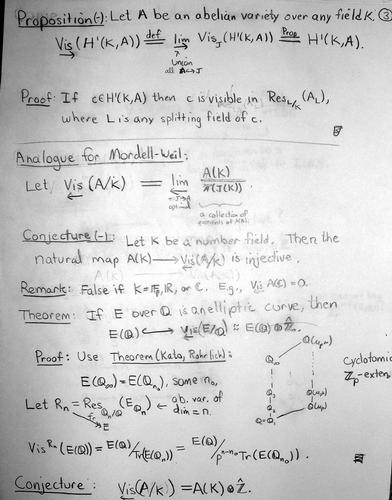 Proposition(-): Let A be an abelian variety over any field K. ③
Vis(H¹(K,A)) def= lim Vis_J(H¹(K,A)) Prop= H¹(K,A).
→ →
Union
all A↪J
Proof: If c∈H¹(K,A) then c is visible in Res_{L/K}(A_L),
where L is any splitting field of c.
Analogue for Mordell-Weil:
Let Vis(A/K) = lim A(K)/π(J(K)).
← ←
π: J→A
optimal
a collection of
elements of A(K).
Conjecture(-): Let K be a number field. Then the
natural map A(K)⟶Vis(A/K) is injective.
Remark: False if K=F_p, R, or C. E.g., Vis A(C)=0.
Theorem: If E over Q is an elliptic curve, then
E(Q) ↪ Vis(E/Q) ≈ E(Q)⊗Ẑ.
Proof: Use Theorem(Kato, Rohrlich):
E(Q_∞)=E(Q_{n_0}), some n_0.
Q_∞
Q_2
Q_1
Q=Q_0
Cyclotomic
Z_p-exten.
Let R_n=Res_{Q_n/Q}(E_{Q_n}) ← ab. var. of
dim=n.
↘ E
Vis^{R_n}(E(Q)) = E(Q)/Tr(E(Q_n)) = E(Q)/p^{n-n_0}Tr(E(Q_{n_0})).
Conjecture: Vis(A/K) = A(K)⊗Ẑ.
←